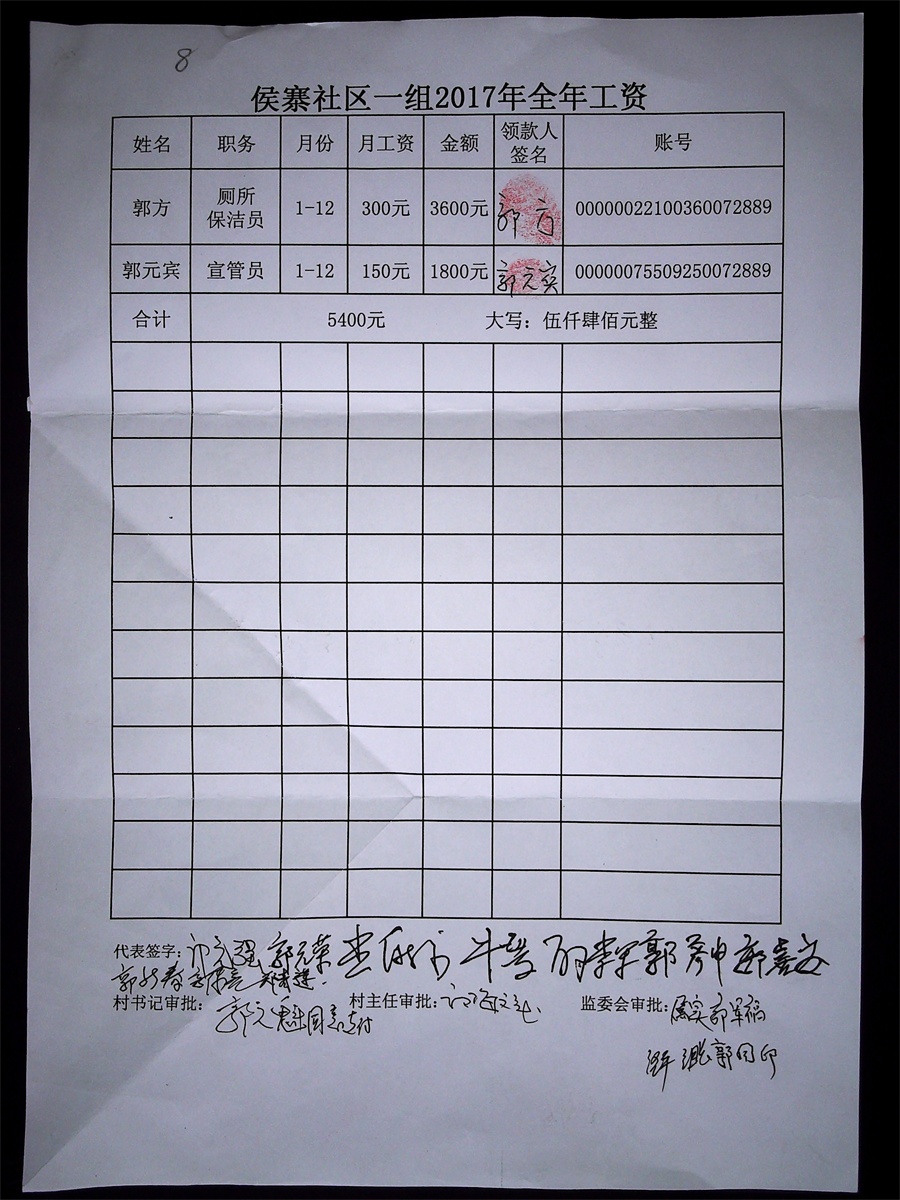 8
侯寨社区一组2017年全年工资
姓名 职务 月份 月工资 金额 领款人签名 账号
郭方 厕所保洁员 1-12 300元 3600元 郭方 00000022100360072889
郭元宾 宣管员 1-12 150元 1800元 郭元宾 00000075509250072889
合计 5400元 大写：伍仟肆佰元整
代表签字： 郭元荣
村书记审批： 郭元魁同意支付 村主任审批： 监委会审批：